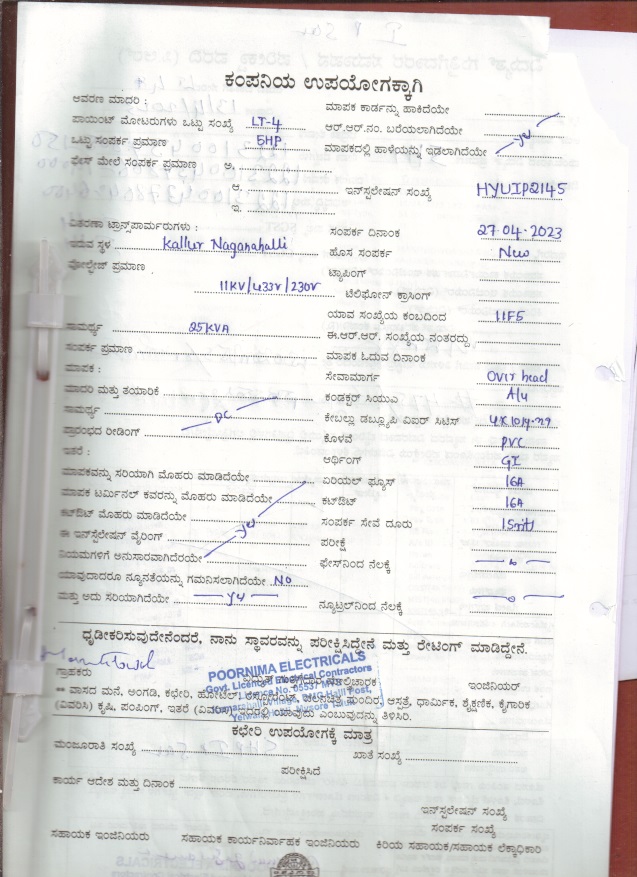 ಕಂಪನಿಯ ಉಪಯೋಗಕ್ಕಾಗಿ
ಆವರಣ ಮಾದರಿ : ಮಾಪಕ ಕಾರ್ಡನ್ನು ಹಾಕಿದೆಯೇ
ಪಾಯಿಂಟ್ ಮೋಟರುಗಳು ಒಟ್ಟು ಸಂಖ್ಯೆ LT-4 ಆರ್.ಆರ್.ನಂ. ಬರೆಯಲಾಗಿದೆಯೇ
ಒಟ್ಟು ಸಂಪರ್ಕ ಪ್ರಮಾಣ 5HP ಮಾಪಕದಲ್ಲಿ ಹಾಳೆಯನ್ನು ಇಡಲಾಗಿದೆಯೇ
ಫೇಸ್ ಮೇಲೆ ಸಂಪರ್ಕ ಪ್ರಮಾಣ ಅ.
ಆ. ಇನ್‌ಸ್ಟಲೇಷನ್ ಸಂಖ್ಯೆ HYUIP2145
ಇ.
ವಿತರಣಾ ಟ್ರಾನ್ಸ್‌ಪಾರ್ಮರುಗಳು : ಸಂಪರ್ಕ ದಿನಾಂಕ 27-04-2023
ಇರುವ ಸ್ಥಳ Kallur Naganahalli ಹೊಸ ಸಂಪರ್ಕ New
ವೋಲ್ಟೇಜ್ ಪ್ರಮಾಣ ಟ್ಯಾಪಿಂಗ್
11KV/433V/230V ಟೆಲಿಫೋನ್ ಕ್ರಾಸಿಂಗ್
ಯಾವ ಸಂಖ್ಯೆಯ ಕಂಬದಿಂದ 11F5
ಸಾಮರ್ಥ್ಯ 25KVA ಈ.ಆರ್.ಆರ್. ಸಂಖ್ಯೆಯ ನಂತರದ್ದು
ಸಂಪರ್ಕ ಪ್ರಮಾಣ ಮಾಪಕ ಓದುವ ದಿನಾಂಕ
ಮಾಪಕ : ಸೇವಾಮಾರ್ಗ Over head
ಮಾದರಿ ಮತ್ತು ತಯಾರಿಕೆ ಕಂಡಕ್ಟರ್ ಸಿಯುಎ Alu
ಸಾಮರ್ಥ್ಯ DC ಕೇಬಲ್ಲು ಡಬ್ಲ್ಯೂಪಿ ಏಐರ್ ಸಿಟಿಸ್
ಪ್ರಾರಂಭದ ರೀಡಿಂಗ್ ಕೊಳವೆ PVC
ಇತರೆ : ಆರ್ಥಿಂಗ್ GI
ಮಾಪಕವನ್ನು ಸರಿಯಾಗಿ ಮೊಹರು ಮಾಡಿದೆಯೇ ಏರಿಯಲ್ ಫ್ಯೂಸ್ 16A
ಮಾಪಕ ಟರ್ಮಿನಲ್ ಕವರನ್ನು ಮೊಹರು ಮಾಡಿದೆಯೇ ಕಟ್‌ಔಟ್ 16A
ಕಟ್‌ಔಟ್ ಮೊಹರು ಮಾಡಿದೆಯೇ ಸಂಪರ್ಕ ಸೇವೆ ದೂರು
ಈ ಇನ್‌ಸ್ಟಲೇಷನ್ ವೈರಿಂಗ್ ಪರೀಕ್ಷೆ
ನಿಯಮಗಳಿಗೆ ಅನುಸಾರವಾಗಿದೆರಯೇ ಫೇಸ್‌ನಿಂದ ನೆಲಕ್ಕೆ
ಯಾವುದಾದರೂ ನ್ಯೂನತೆಯನ್ನು ಗಮನಿಸಲಾಗಿದೆಯೇ NO
ಮತ್ತು ಅದು ಸರಿಯಾಗಿದೆಯೇ ನ್ಯೂಟ್ರಲ್‌ನಿಂದ ನೆಲಕ್ಕೆ
ಧೃಡೀಕರಿಸುವುದೇನೆಂದರೆ, ನಾನು ಸ್ಥಾವರವನ್ನು ಪರೀಕ್ಷಿಸಿದ್ದೇನೆ ಮತ್ತು ರೇಟಿಂಗ್ ಮಾಡಿದ್ದೇನೆ.
POORNIMA ELECTRICALS
Govt. Licensed Electrical Contractors
ಗ್ರಾಹಕರು ಇಂಜಿನಿಯರ್
** ವಾಸದ ಮನೆ, ಅಂಗಡಿ, ಕಛೇರಿ, ಆಸ್ಪತ್ರೆ, ಧಾರ್ಮಿಕ, ಶೈಕ್ಷಣಿಕ, ಕೈಗಾರಿಕ
(ವಿವರಿಸಿ) ಕೃಷಿ, ಪಂಪಿಂಗ್, ಇತರೆ (ವಿವರಿಸಿ) ಇದರಲ್ಲಿ ಯಾವುದು ಎಂಬುವುದನ್ನು ತಿಳಿಸಿರಿ.
ಕಛೇರಿ ಉಪಯೋಗಕ್ಕೆ ಮಾತ್ರ
ಮಂಜೂರಾತಿ ಸಂಖ್ಯೆ ಖಾತೆ ಸಂಖ್ಯೆ
ಪರೀಕ್ಷಿಸಿದೆ
ಕಾರ್ಯ ಆದೇಶ ಮತ್ತು ದಿನಾಂಕ
ಇನ್‌ಸ್ಟಲೇಷನ್ ಸಂಖ್ಯೆ
ಸಂಪರ್ಕ ಸಂಖ್ಯೆ
ಸಹಾಯಕ ಇಂಜಿನಿಯರು ಸಹಾಯಕ ಕಾರ್ಯನಿರ್ವಾಹಕ ಇಂಜಿನಿಯರು ಕಿರಿಯ ಸಹಾಯಕ/ಸಹಾಯಕ ಲೆಕ್ಕಾಧಿಕಾರಿ